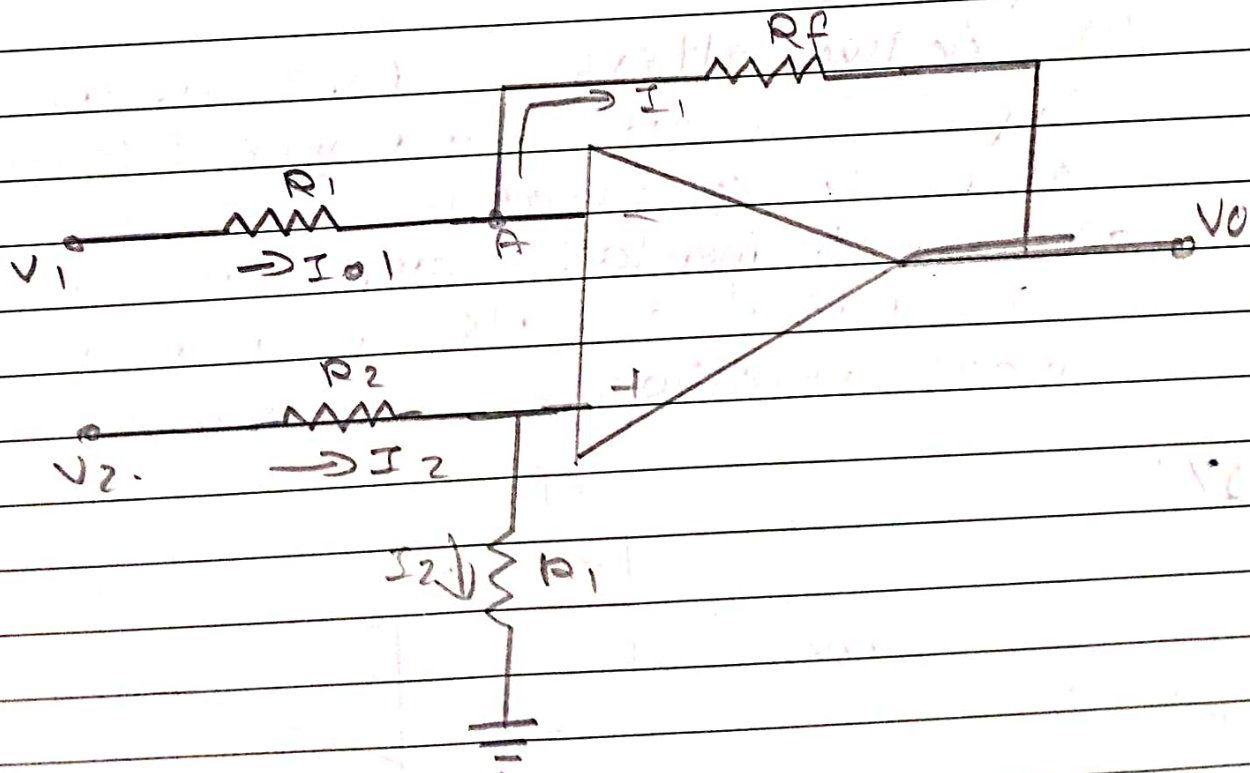 Rf
I1
R1
-
A
V1
→I01
V0
R2
+
V2.
→I2
I2↓
R1